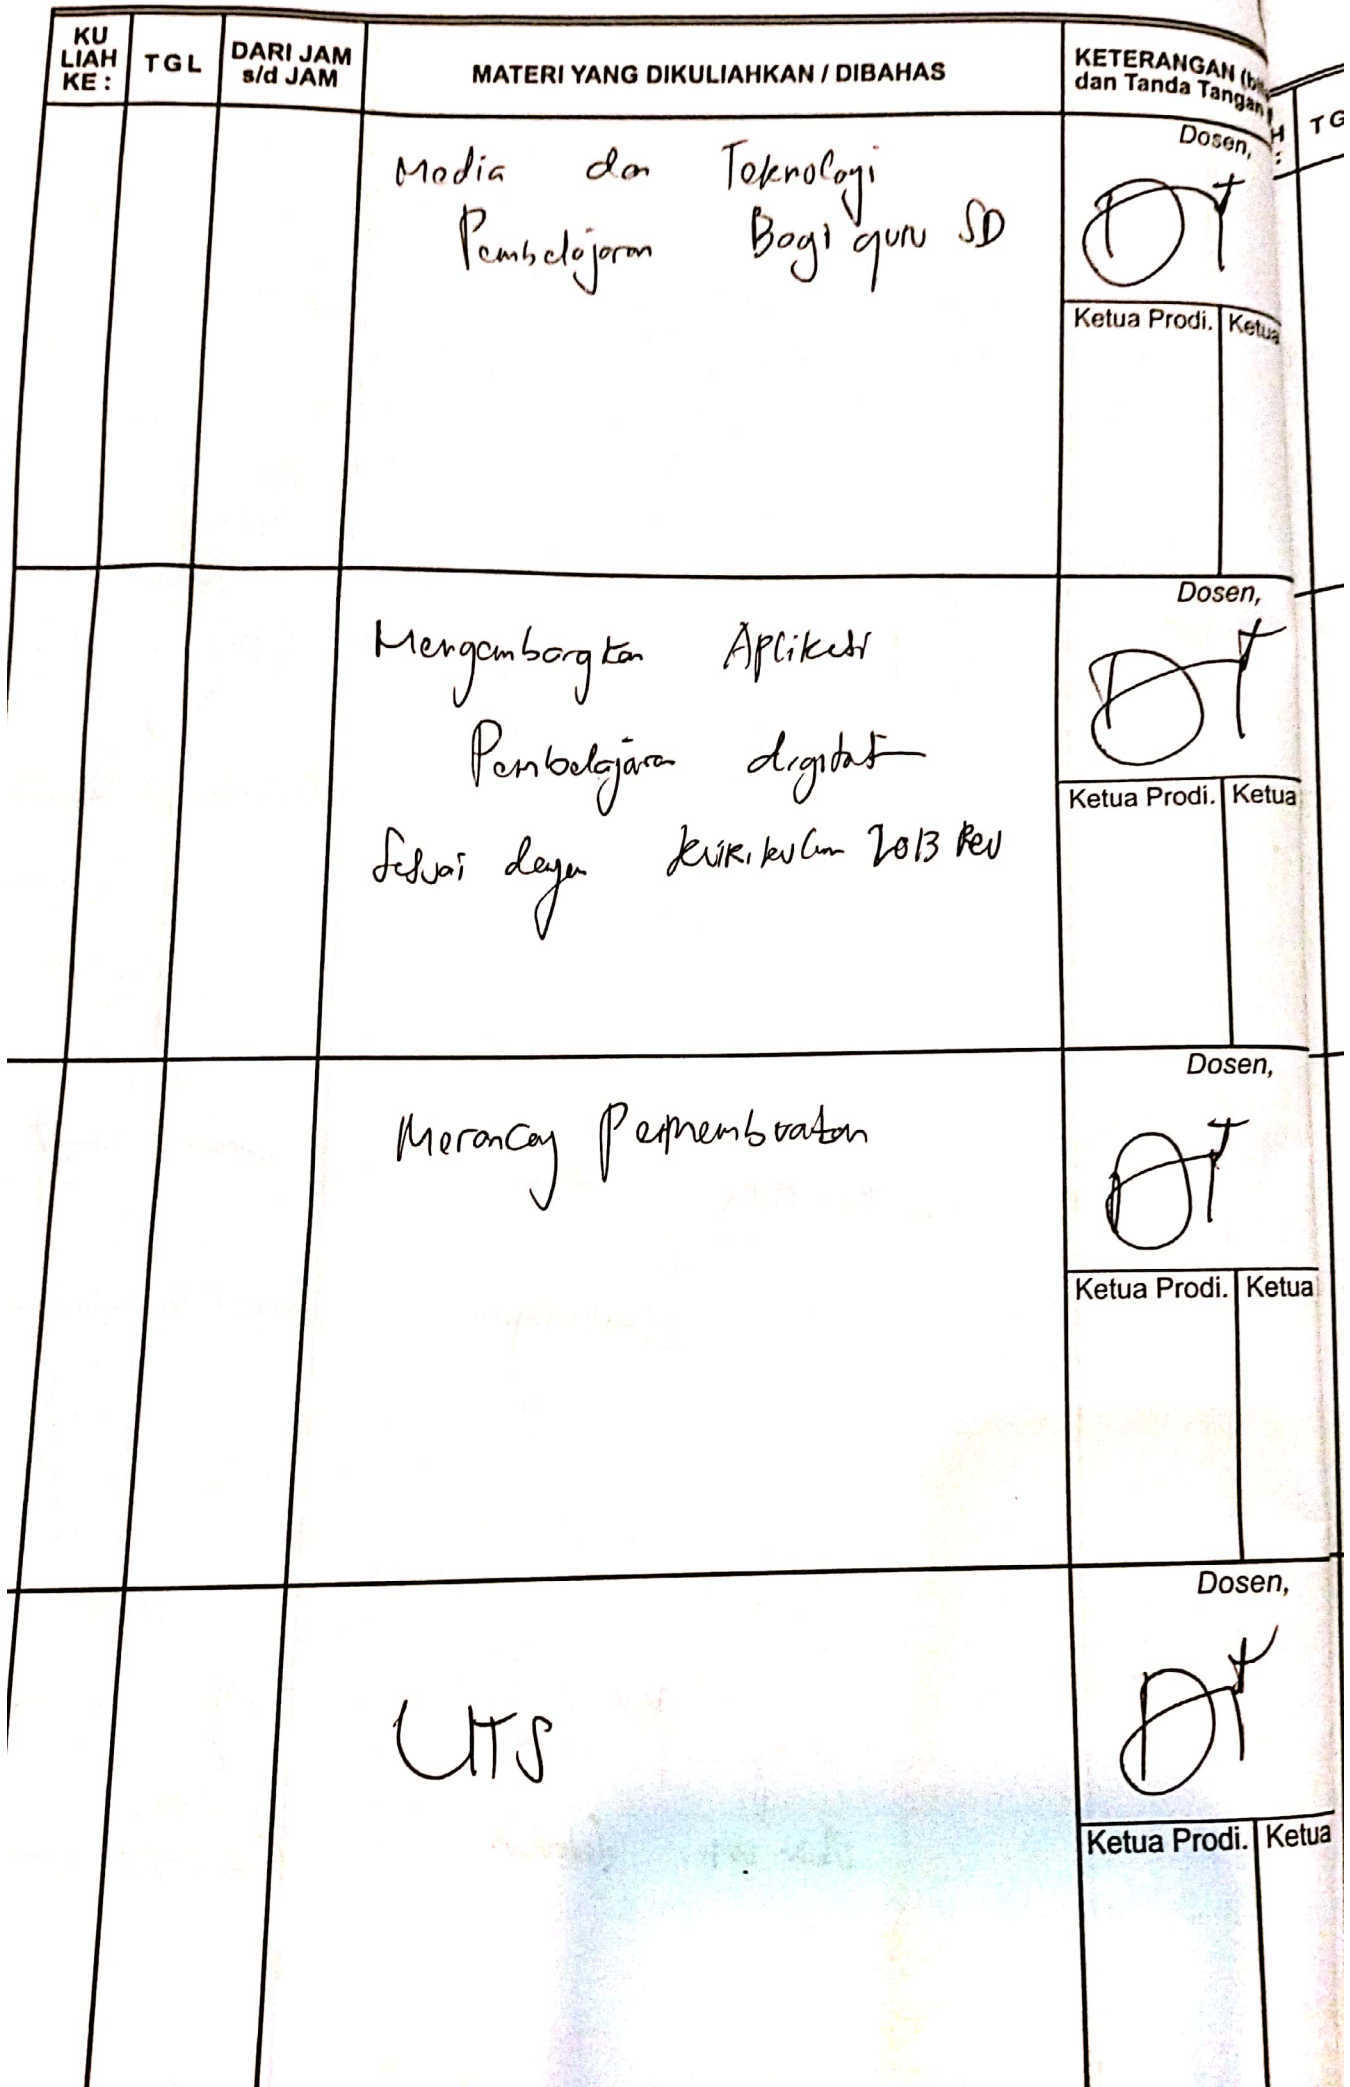 KU
LIAH
KE :
TGL
DARI JAM
s/d JAM
MATERI YANG DIKULIAHKAN / DIBAHAS
KETERANGAN
dan Tanda Tangan
TG
Media dan Teknologi
Pembelajaran Bagi guru SD
Dosen,
Ketua Prodi. Ketua
Mengembangkan Aplikasi
Pembelajaran digital
Sesuai dengan kurikulum 2013 Rev
Dosen,
Ketua Prodi. Ketua
Merancang
Dosen,
Ketua Prodi. Ketua
UTS
Dosen,
Ketua Prodi. Ketua